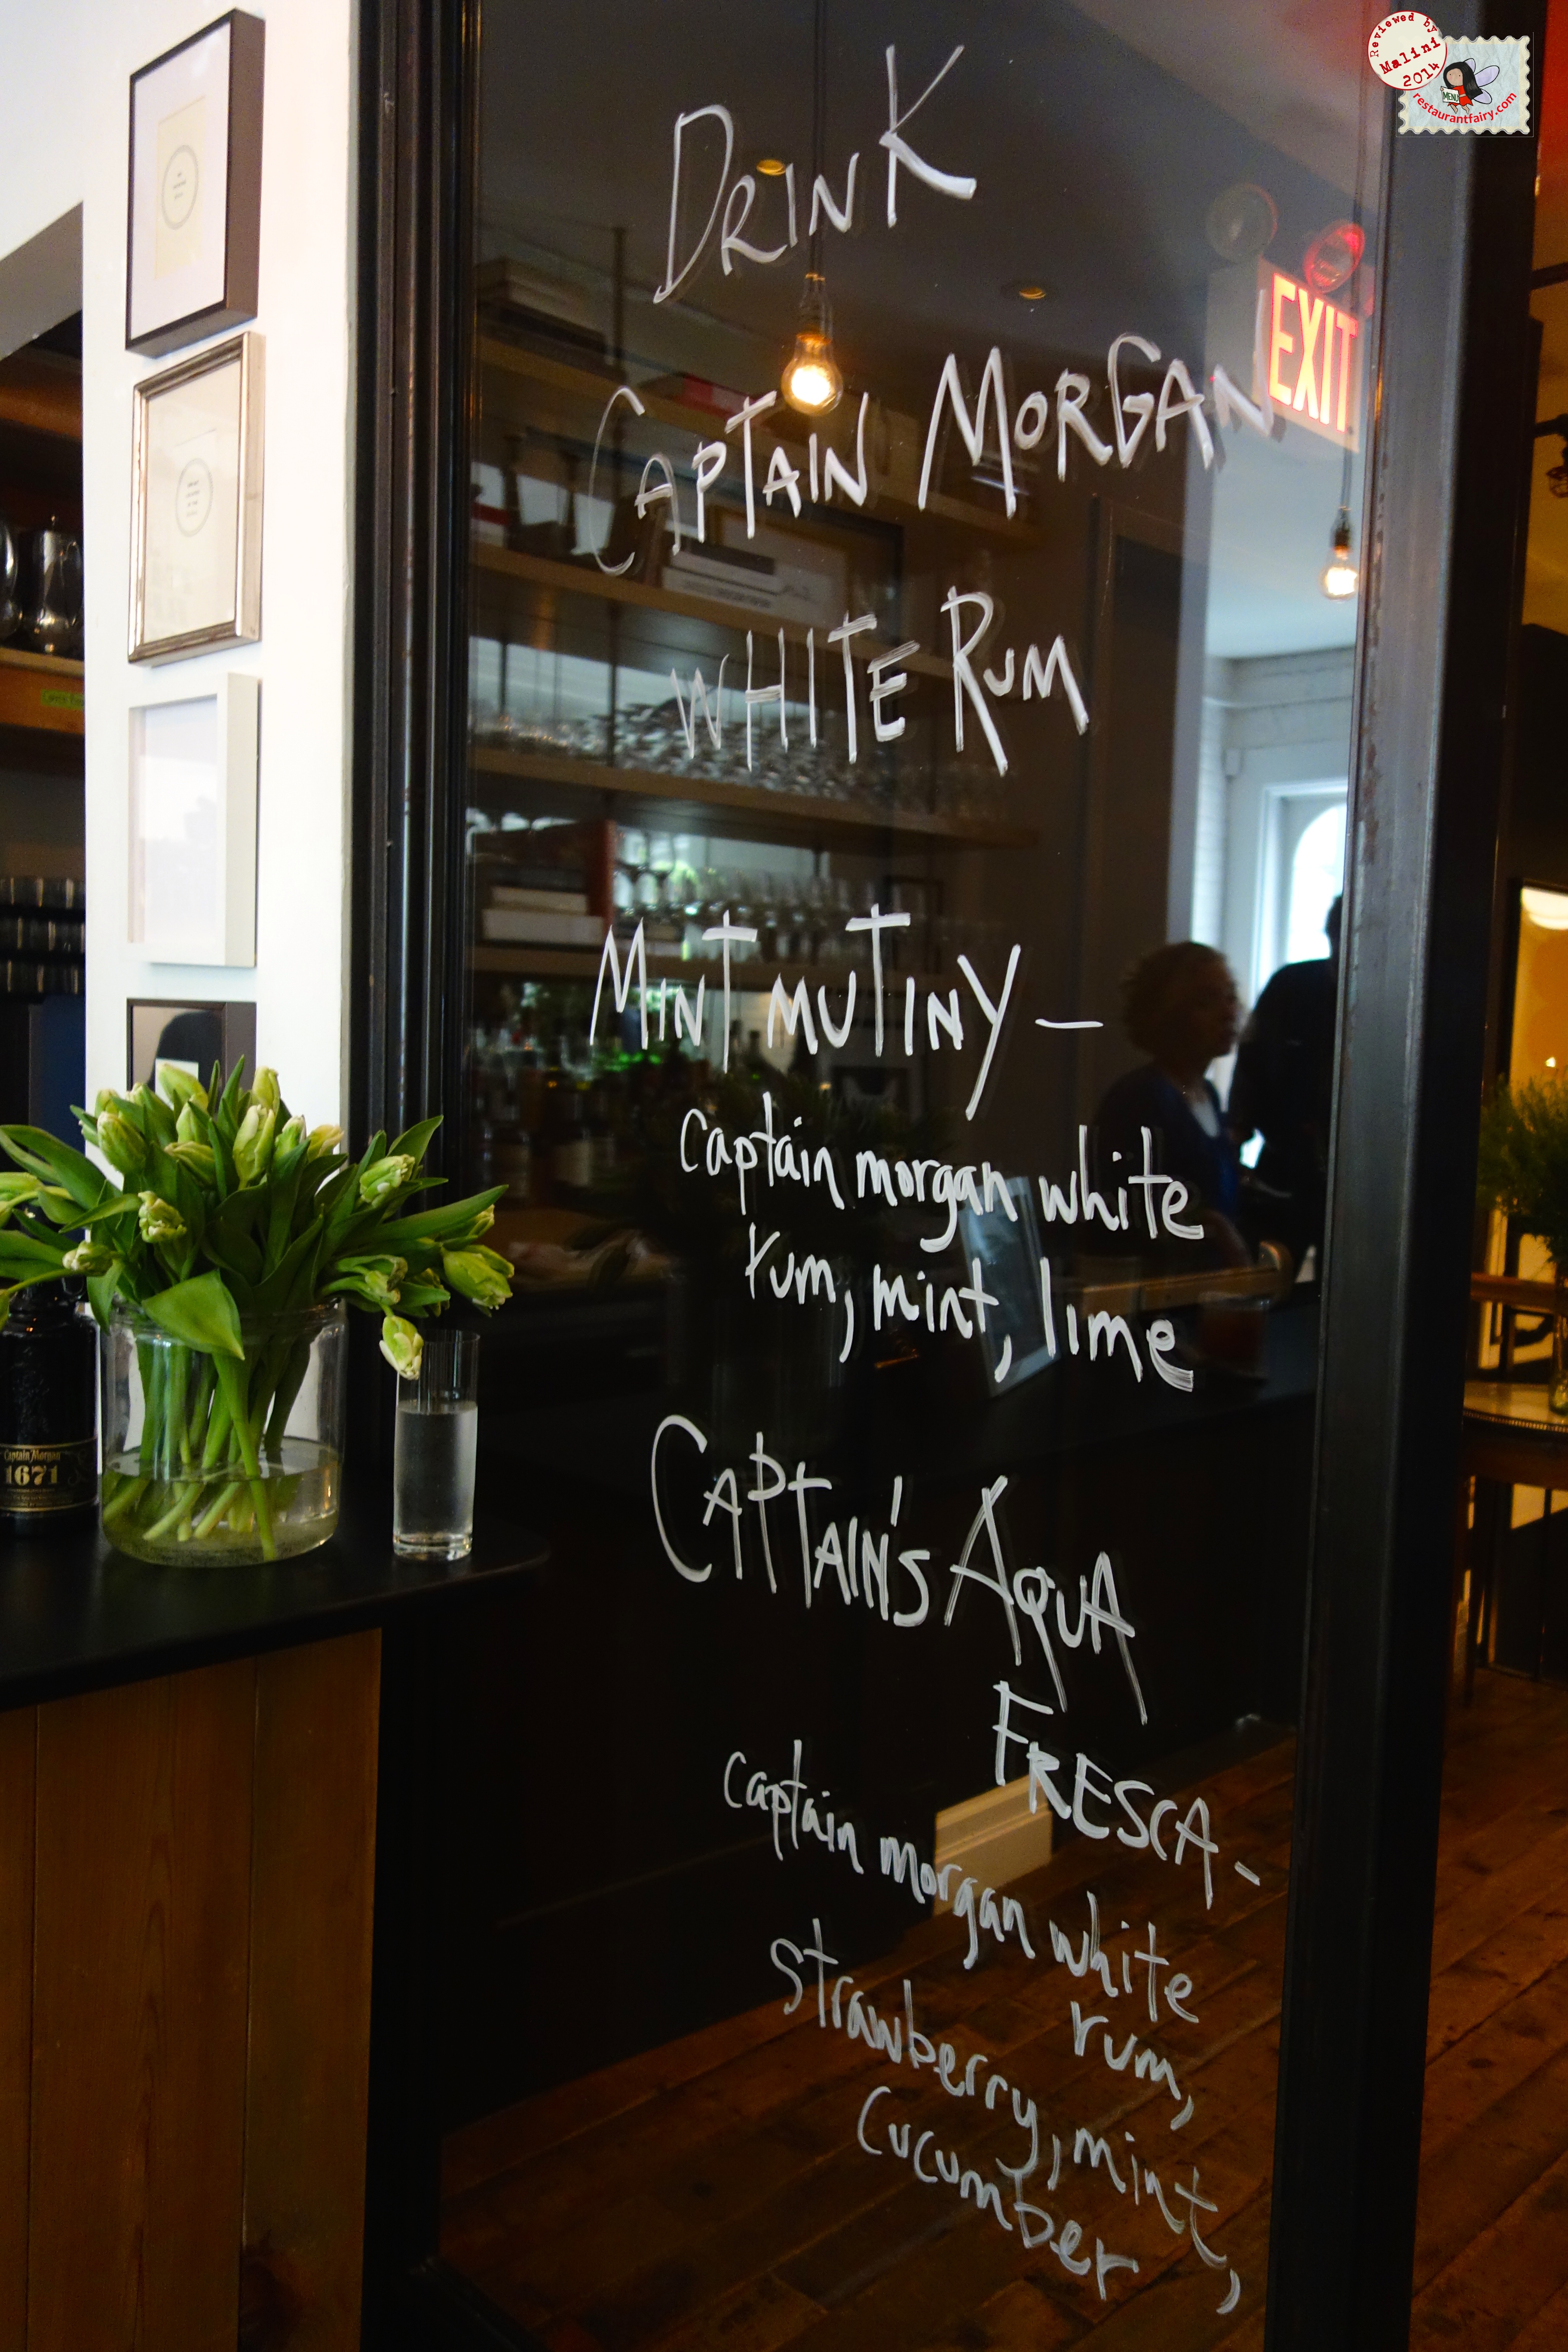 Reviewed by
Malini
2014
MENU
restaurantfairy.com
DRINK
EXIT
CAPTAIN MORGAN
WHITE RUM
MINT MUTINY –
captain morgan white
rum, mint, lime
CAPTAIN'S AQUA
FRESCA -
captain morgan white
rum,
strawberry, mint,
cucumber
Captain Morgan
1671